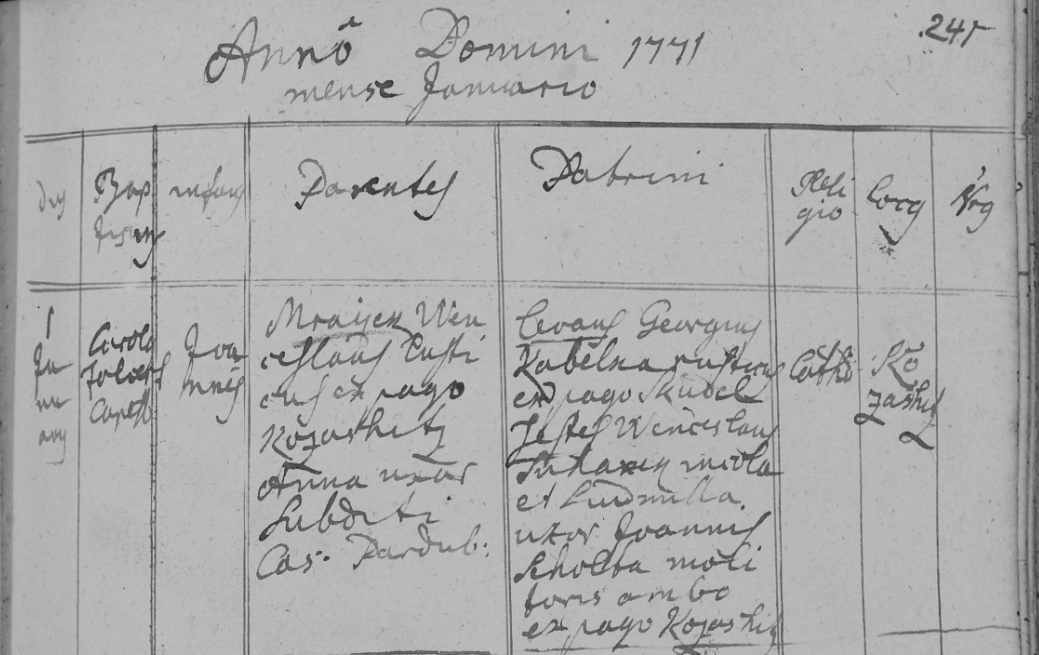 245
Annô Domini 1771
mense Januario
dies
Bap
tismus
infans
Parentes
Patrini
Reli
gio
locus
Nrus
1
Ja
nu
arius
Carolus
Joannis
Mraczek Wen
ceslaus rusti
cus ex pago
Kozashitz
Anna uxor
Subditi
Cas: Pardub:
levans Georgius
Kabelka rusticus
ex pago
Testes Wenceslaus
incola
et Ludmilla
uxor Joannis
moli
toris ambo
ex pago Kozashitz
Catho
Ko
zashitz